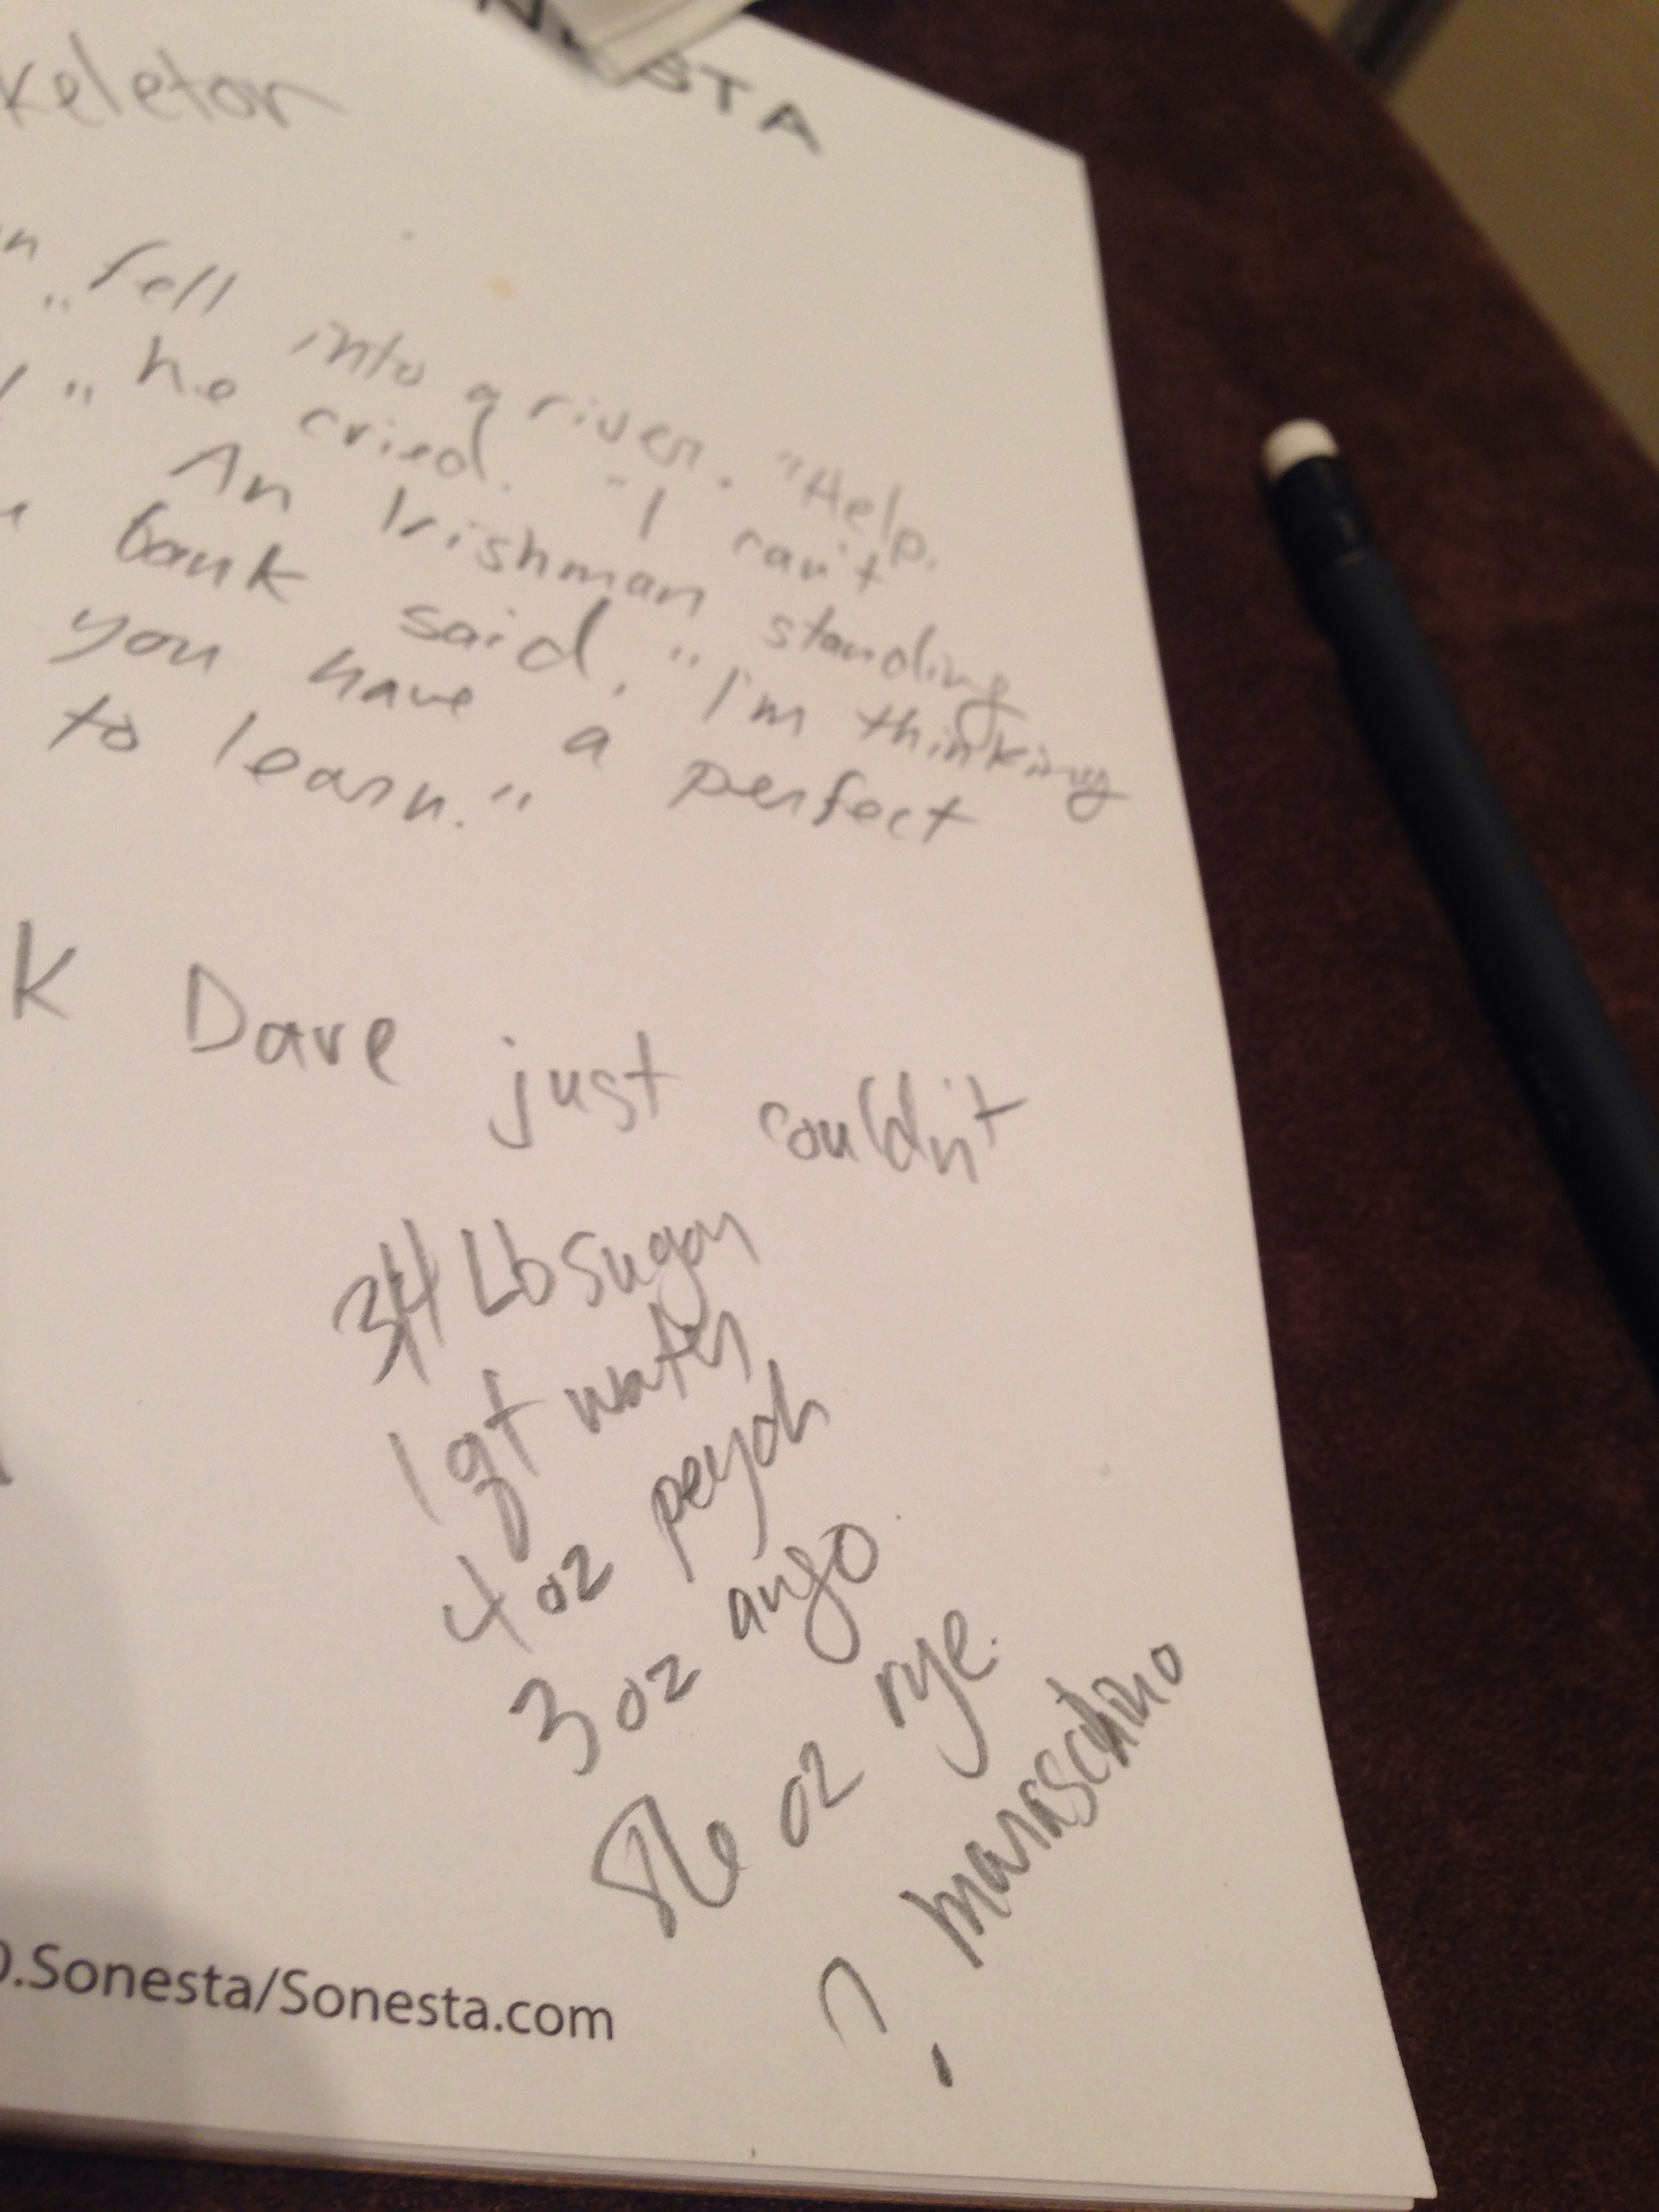 keletor
STA
n fell into a river. "Help.
" he cried. "I can't
An Irishman standing
bank said, "I'm thinking
you have a perfect
to learn."
K Dave just couldn't
3/4 Lb sugar
1 qt water
4 oz peych
3 oz ango
oz rye.
? maraschino
.Sonesta/Sonesta.com